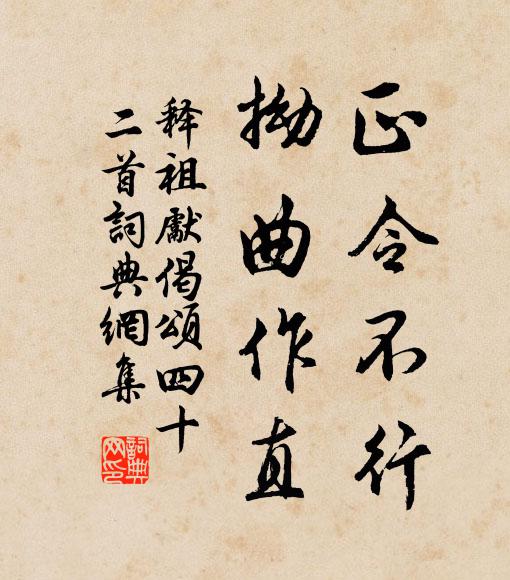 正令不行
拗曲作直
释祖獻偈頌四十
二首詞典網集
詞典
网印